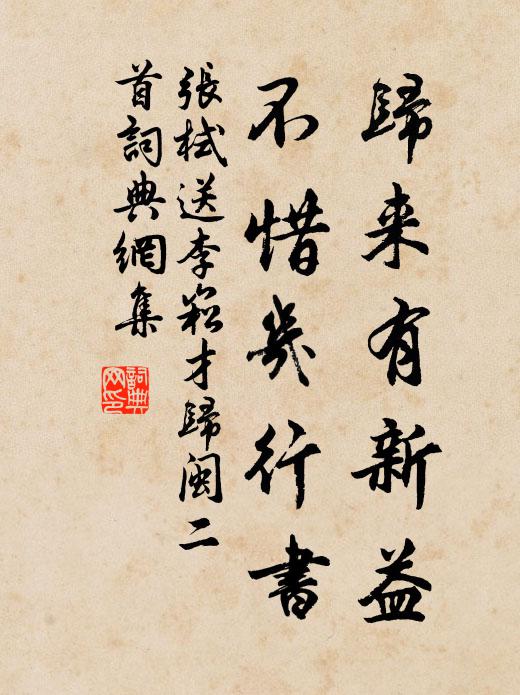 歸来有新益
不惜幾行書
張栻送李崧才歸閩二
首詞典網集
詞典
网印